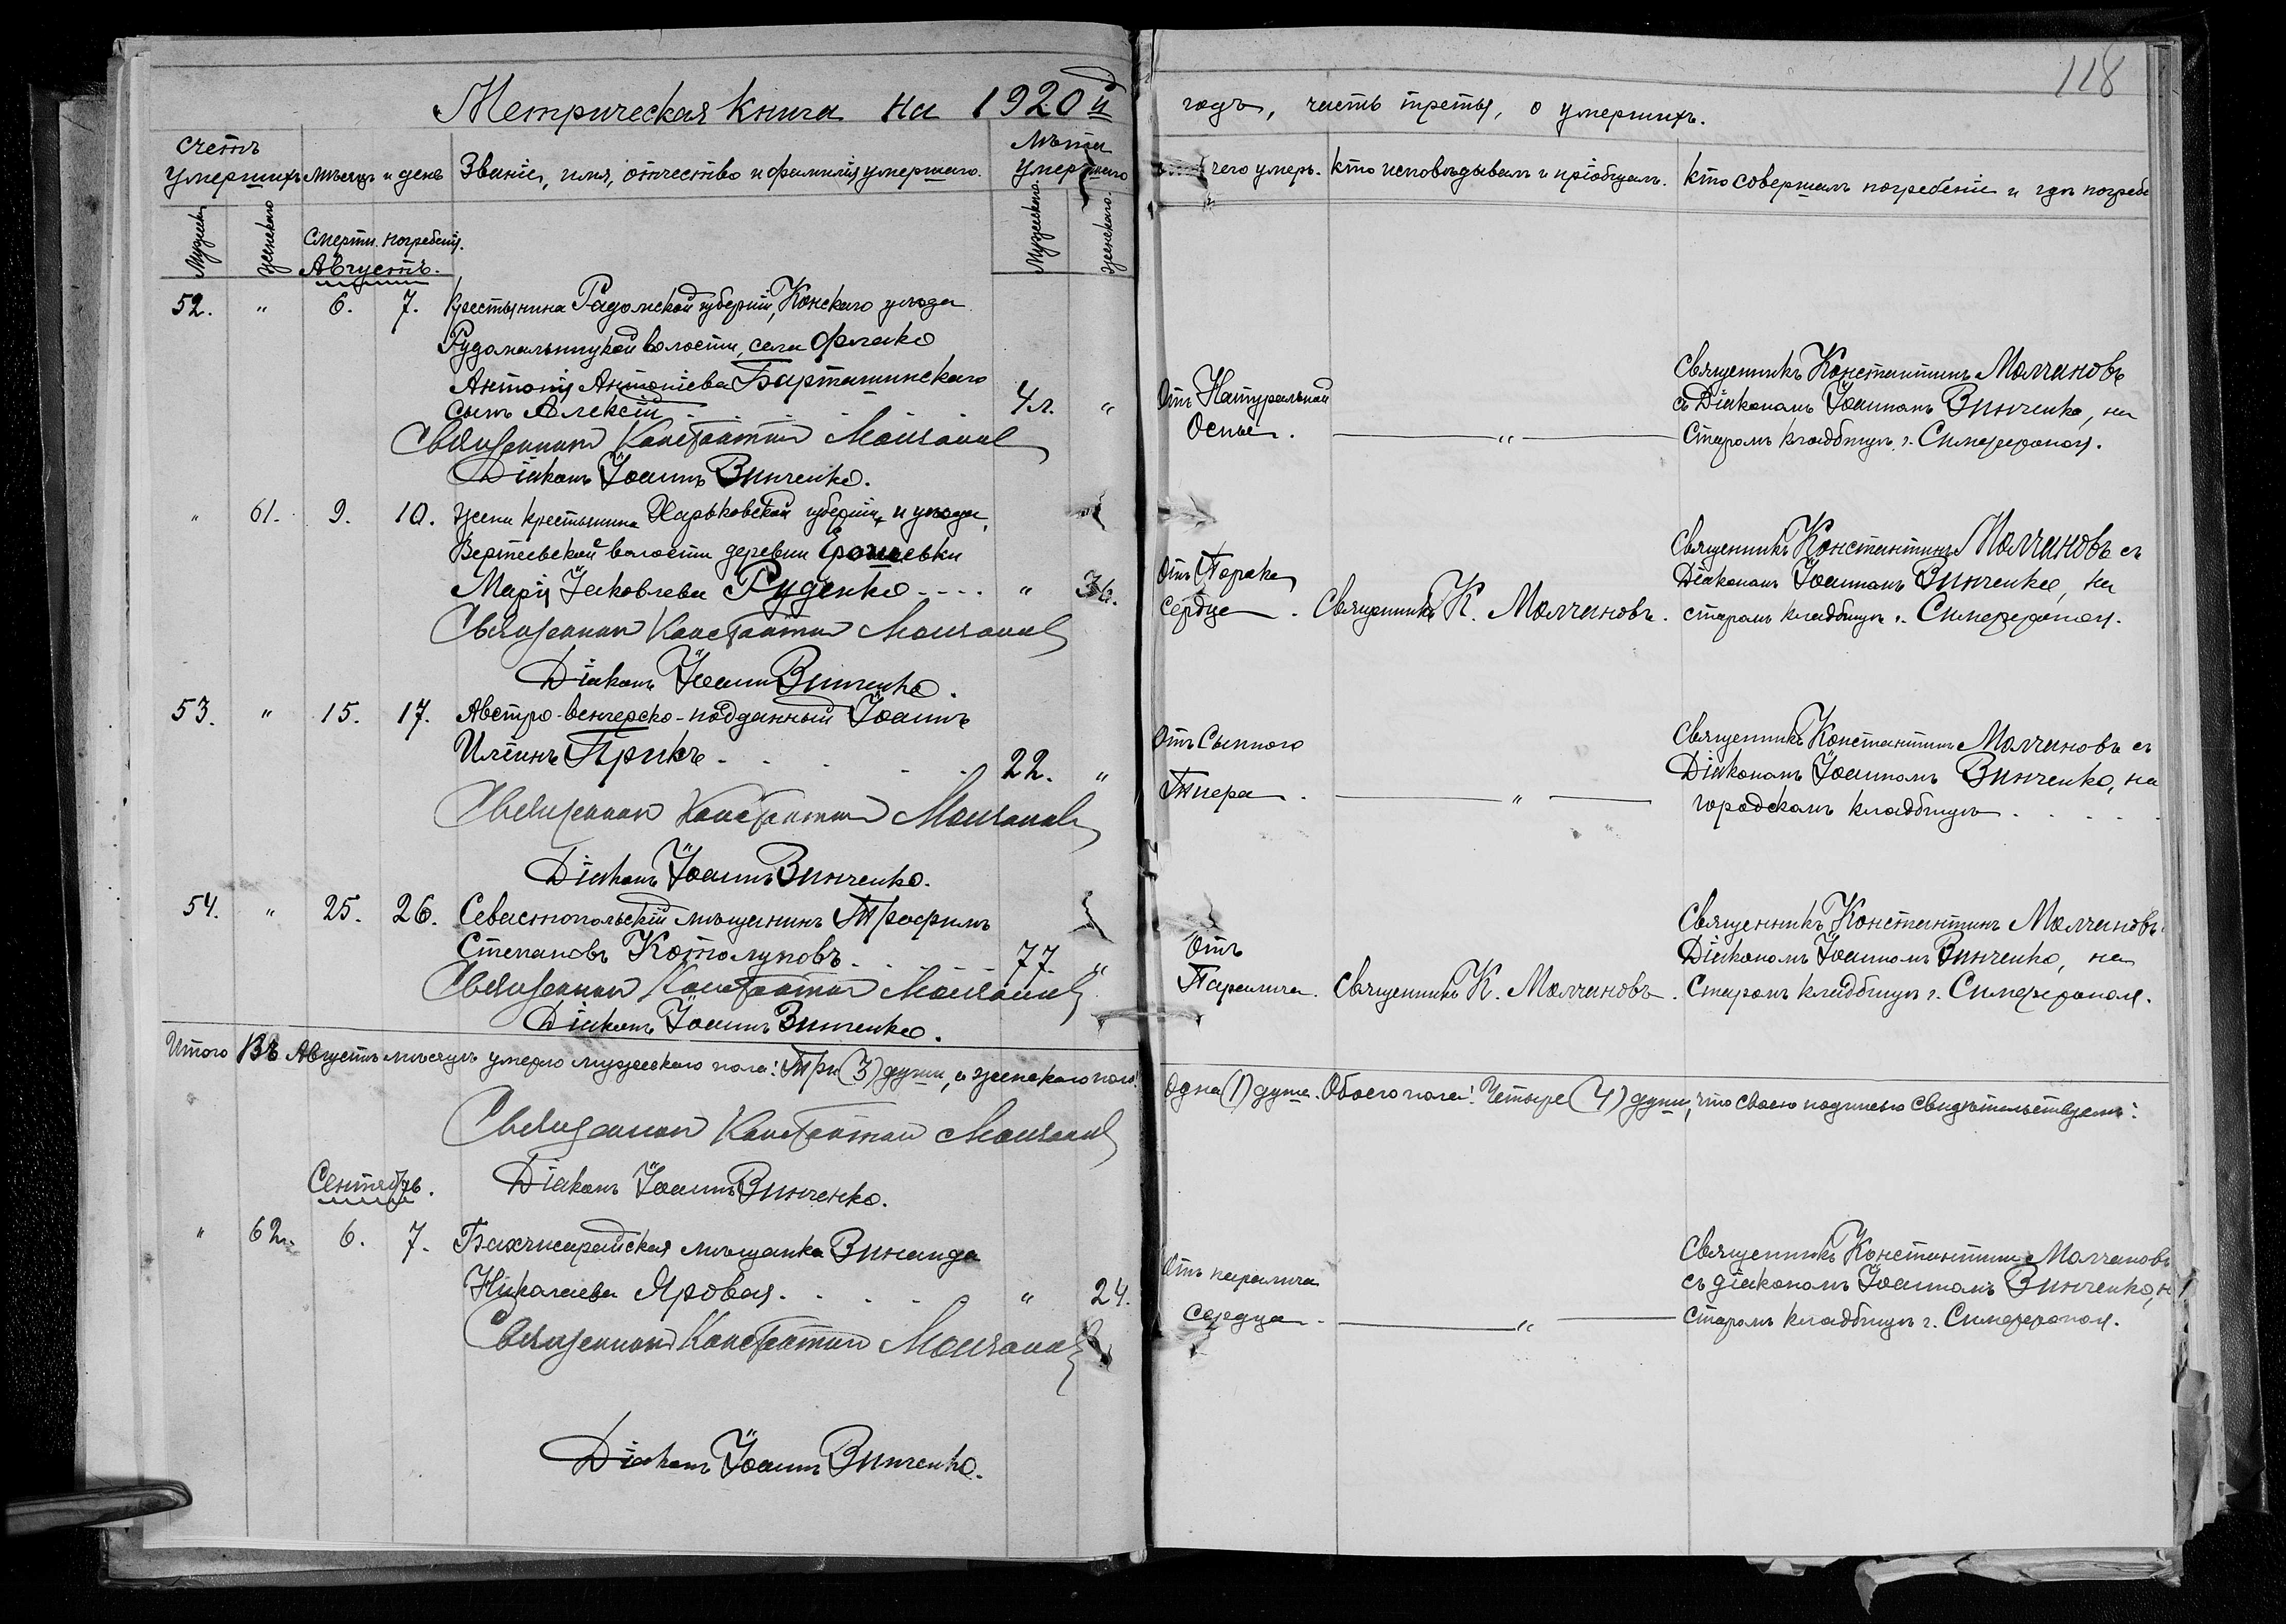 118
Метрическая книга на 1920й
годъ, часть третья, о умершихъ.
счетъ умершихъ
Мѣсяцъ и день
Званіе, имя, отчество и фамилія умершаго.
Лѣта умершаго
чего умеръ.
кто исповѣдывалъ и пріобщалъ.
кто совершалъ погребеніе и гдѣ погребе
Мужеск
женскаго
Смерти. погребенія.
Мужескаго.
женскаго.
Августъ.
52. " 6. 7. Крестьянина Радомской губерніи, Конскаго уѣзда
волости, села
Антонія Антоніева Барташинскаго
сынъ Алексій 4 л. "
Отъ Натуральной
Оспы. "
Священникъ Константинъ Молчановъ
съ Діакономъ Іоанномъ Винченко, на
Старомъ кладбищѣ г. Симферополя.
Священник Константин Молчанов
Діаконъ Іоаннъ Винченко.
" 61. 9. 10. жена крестьянина Харьковской губерніи и уѣзда,
волости деревни
Марія Іаковлева Руденко " 36.
Отъ Порока
Сердца.
Священникъ К. Молчановъ.
Священникъ Константинъ Молчановъ съ
Діакономъ Іоанномъ Винченко, на
старомъ кладбищѣ г. Симферополя.
Священник Константин Молчанов
Діаконъ Іоаннъ Винченко.
53. " 15. 17. Австро-венгерско-подданный Іоаннъ
Иліинъ Прикъ 22. "
Отъ Сыпного
Тифа. "
Священникъ Константинъ Молчановъ съ
Діакономъ Іоанномъ Винченко, на
городскомъ кладбищѣ
Священник Константин Молчанов
Діаконъ Іоаннъ Винченко.
54. " 25. 26. Севастопольскій мѣщанинъ Трофимъ
Степановъ Котолуповъ 77. "
Отъ
Паралича.
Священникъ К. Молчановъ.
Священникъ Константинъ Молчановъ
Діакономъ Іоанномъ Винченко, на
Старомъ кладбищѣ г. Симферополя.
Священник Константин Молчанов
Діаконъ Іоаннъ Винченко.
Итого Въ Августѣ мѣсяцѣ умерло мужескаго пола: Три (3) души, а женскаго пола:
Одна (1) душа. Обоего пола: Четыре (4) души, что своею подписью свидѣтельствуемъ:
Священник Константин Молчанов
Діаконъ Іоаннъ Винченко.
Сентябрь.
" 62. 6. 7. Бахчисарайская мѣщанка Зинаида
Николаева Яровая " 24.
Отъ паралича
сердца. "
Священникъ Константинъ Молчановъ
съ діакономъ Іоанномъ Винченко, н
Старомъ кладбищѣ г. Симферополя.
Священник Константин Молчанов
Діаконъ Іоаннъ Винченко.